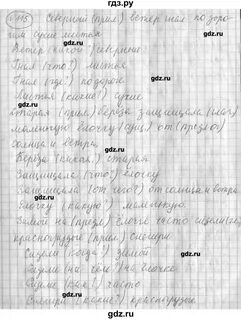 гдз.ру
Северный (прил.) ветер гнал по доро-
гам сухие листья.
Ветер (какой?) северный
Гнал (что?) листья
Гнал (где?) по дороге
Листья (какие?) сухие
Старая (прил.) берёза защищала (глаг.)
маленькую ёлочку (сущ.) от (предлог)
солнца и ветра.
Берёза (какая?) старая
Защищала (что?) ёлочку
Защищала (от чего?) от солнца и ветра
Ёлочку (какую?) маленькую.
Зимой на (предл.) ёлочке часто сидели
красногрудые (прил.) снегири
Сидели (когда?) зимой
Сидели (на чём?) на ёлочке
Сидели (как?) часто
Снегири (какие?) красногрудые